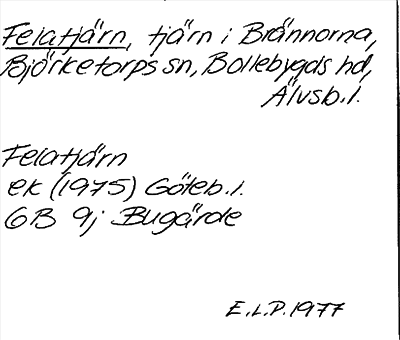 Felatjärn, tjärn i Brännorna,
Björketorps sn, Bollebygds hd,
Älvsb. l.
Felatjärn
ek (1975) Göteb. l.
6B 9j Bugärde
E.L.P. 1977